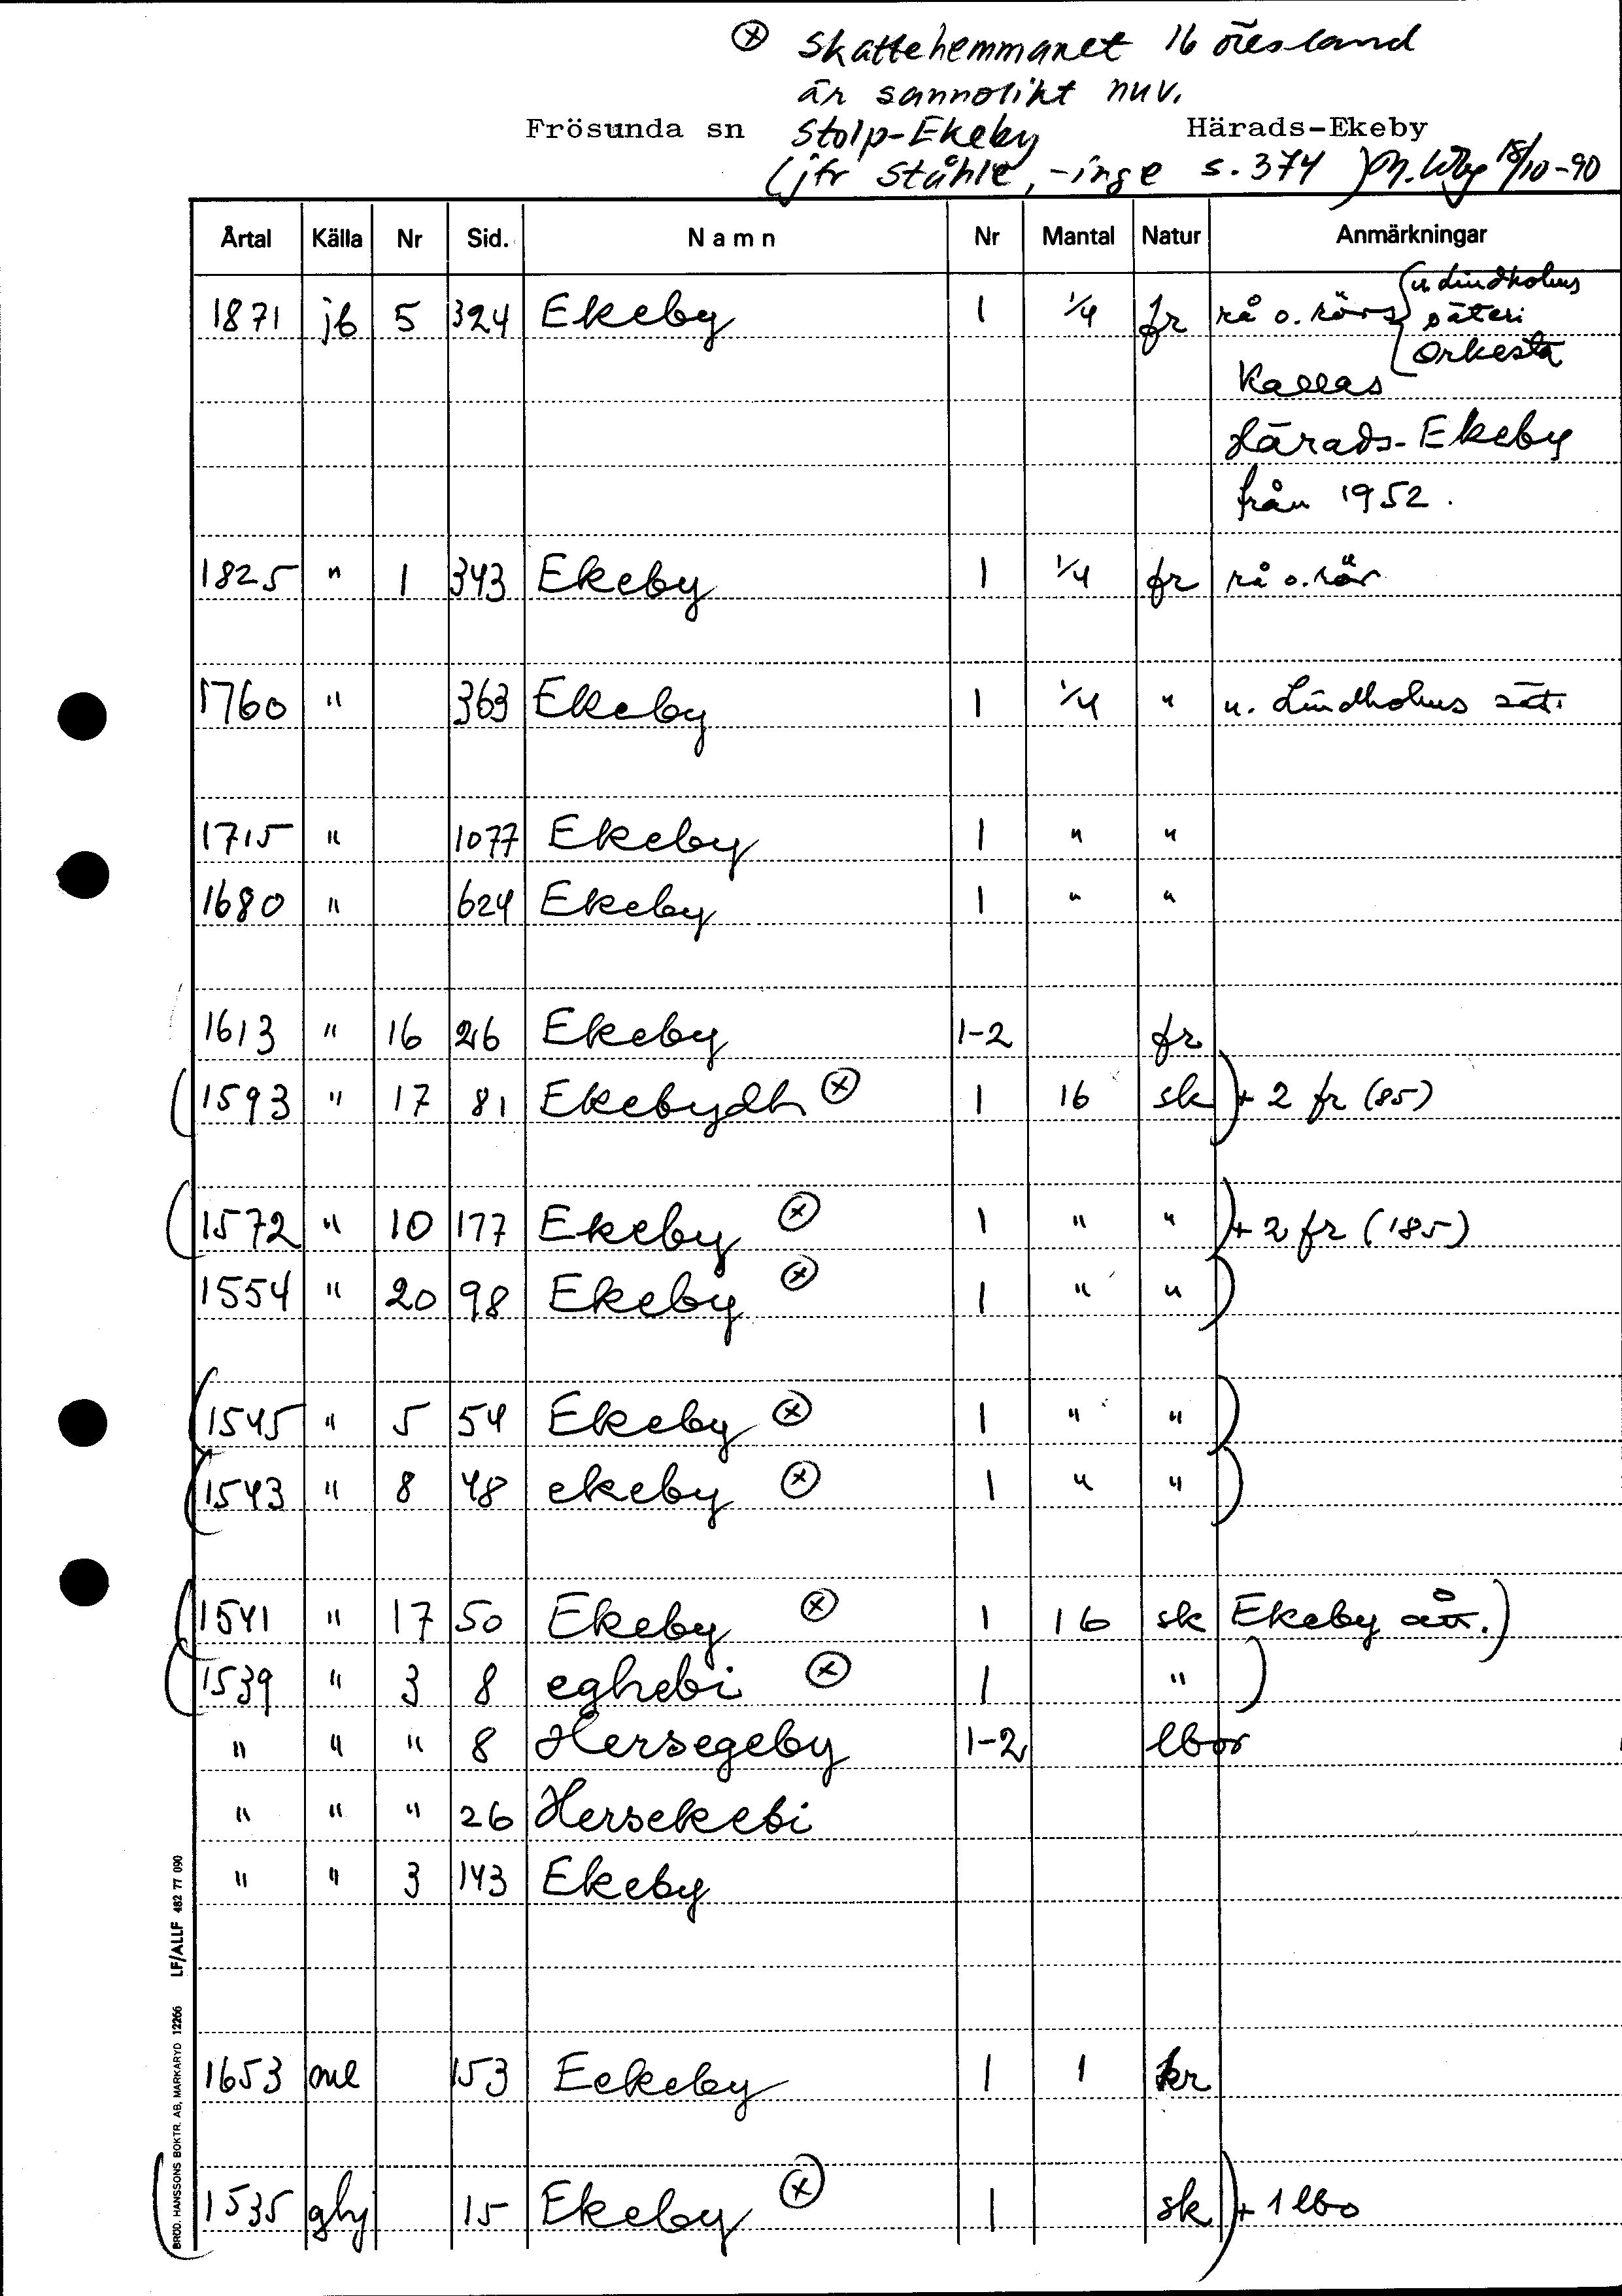 ⊗ Skattehemmanet 16 öresland
är sannolikt nuv.
Frösunda sn Stolp-Ekeby Härads-Ekeby
(jfr Ståhle, -inge s. 374) 18/10-90
Årtal Källa Nr Sid. Namn Nr Mantal Natur Anmärkningar
1871 jb 5 324 Ekeby 1 1/4 fr rå o. rörs { u. Lindholms
säteri
Orkesta
Kallas
Härads-Ekeby
från 1952.
1825 " 1 343 Ekeby 1 1/4 fr rå o. rör
1760 " 363 Ekeby 1 1/4 " u. Lindholms sät.
1715 " 1077 Ekeby 1 " "
1680 " 624 Ekeby 1 " "
1613 " 16 26 Ekeby 1-2 fr
(1593 " 17 81 Ekebydh ⊗ 1 16 sk) + 2 fr (85)
(1572 " 10 177 Ekeby ⊗ 1 " ") + 2 fr (185)
1554 " 20 98 Ekeby ⊗ 1 " ")
(1545 " 5 54 Ekeby ⊗ 1 " ")
(1543 " 8 48 ekeby ⊗ 1 " ")
(1541 " 17 50 Ekeby ⊗ 1 16 sk Ekebyått.)
(1539 " 3 8 eghebi ⊗ 1 ")
" " " 8 Hersegeby 1-2 lbor
" " " 26 Hersekebi
" " 3 143 Ekeby
1653 ml 153 Eekeby 1 1 kr
(1535 ghj 15 Ekeby ⊗ 1 sk) + 1 lbo
BRÖD. HANSSONS BOKTR. AB, MARKARYD 12266 LF/ALLF 482 77 090